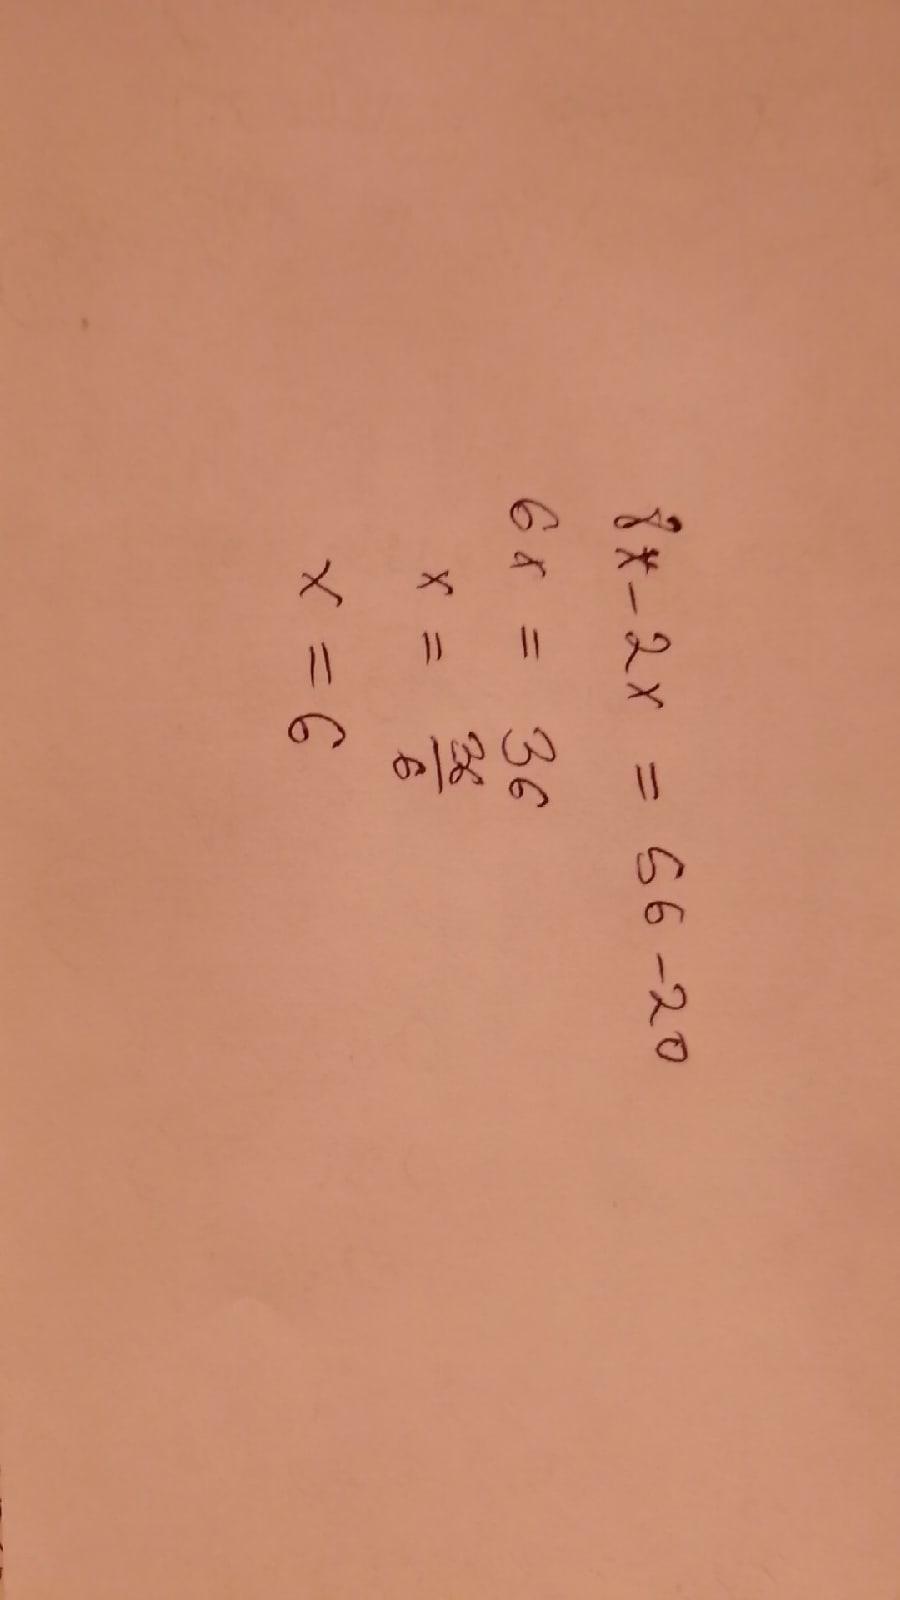 8x - 2x = 56 - 20
6x = 36
x = 36/6
x = 6